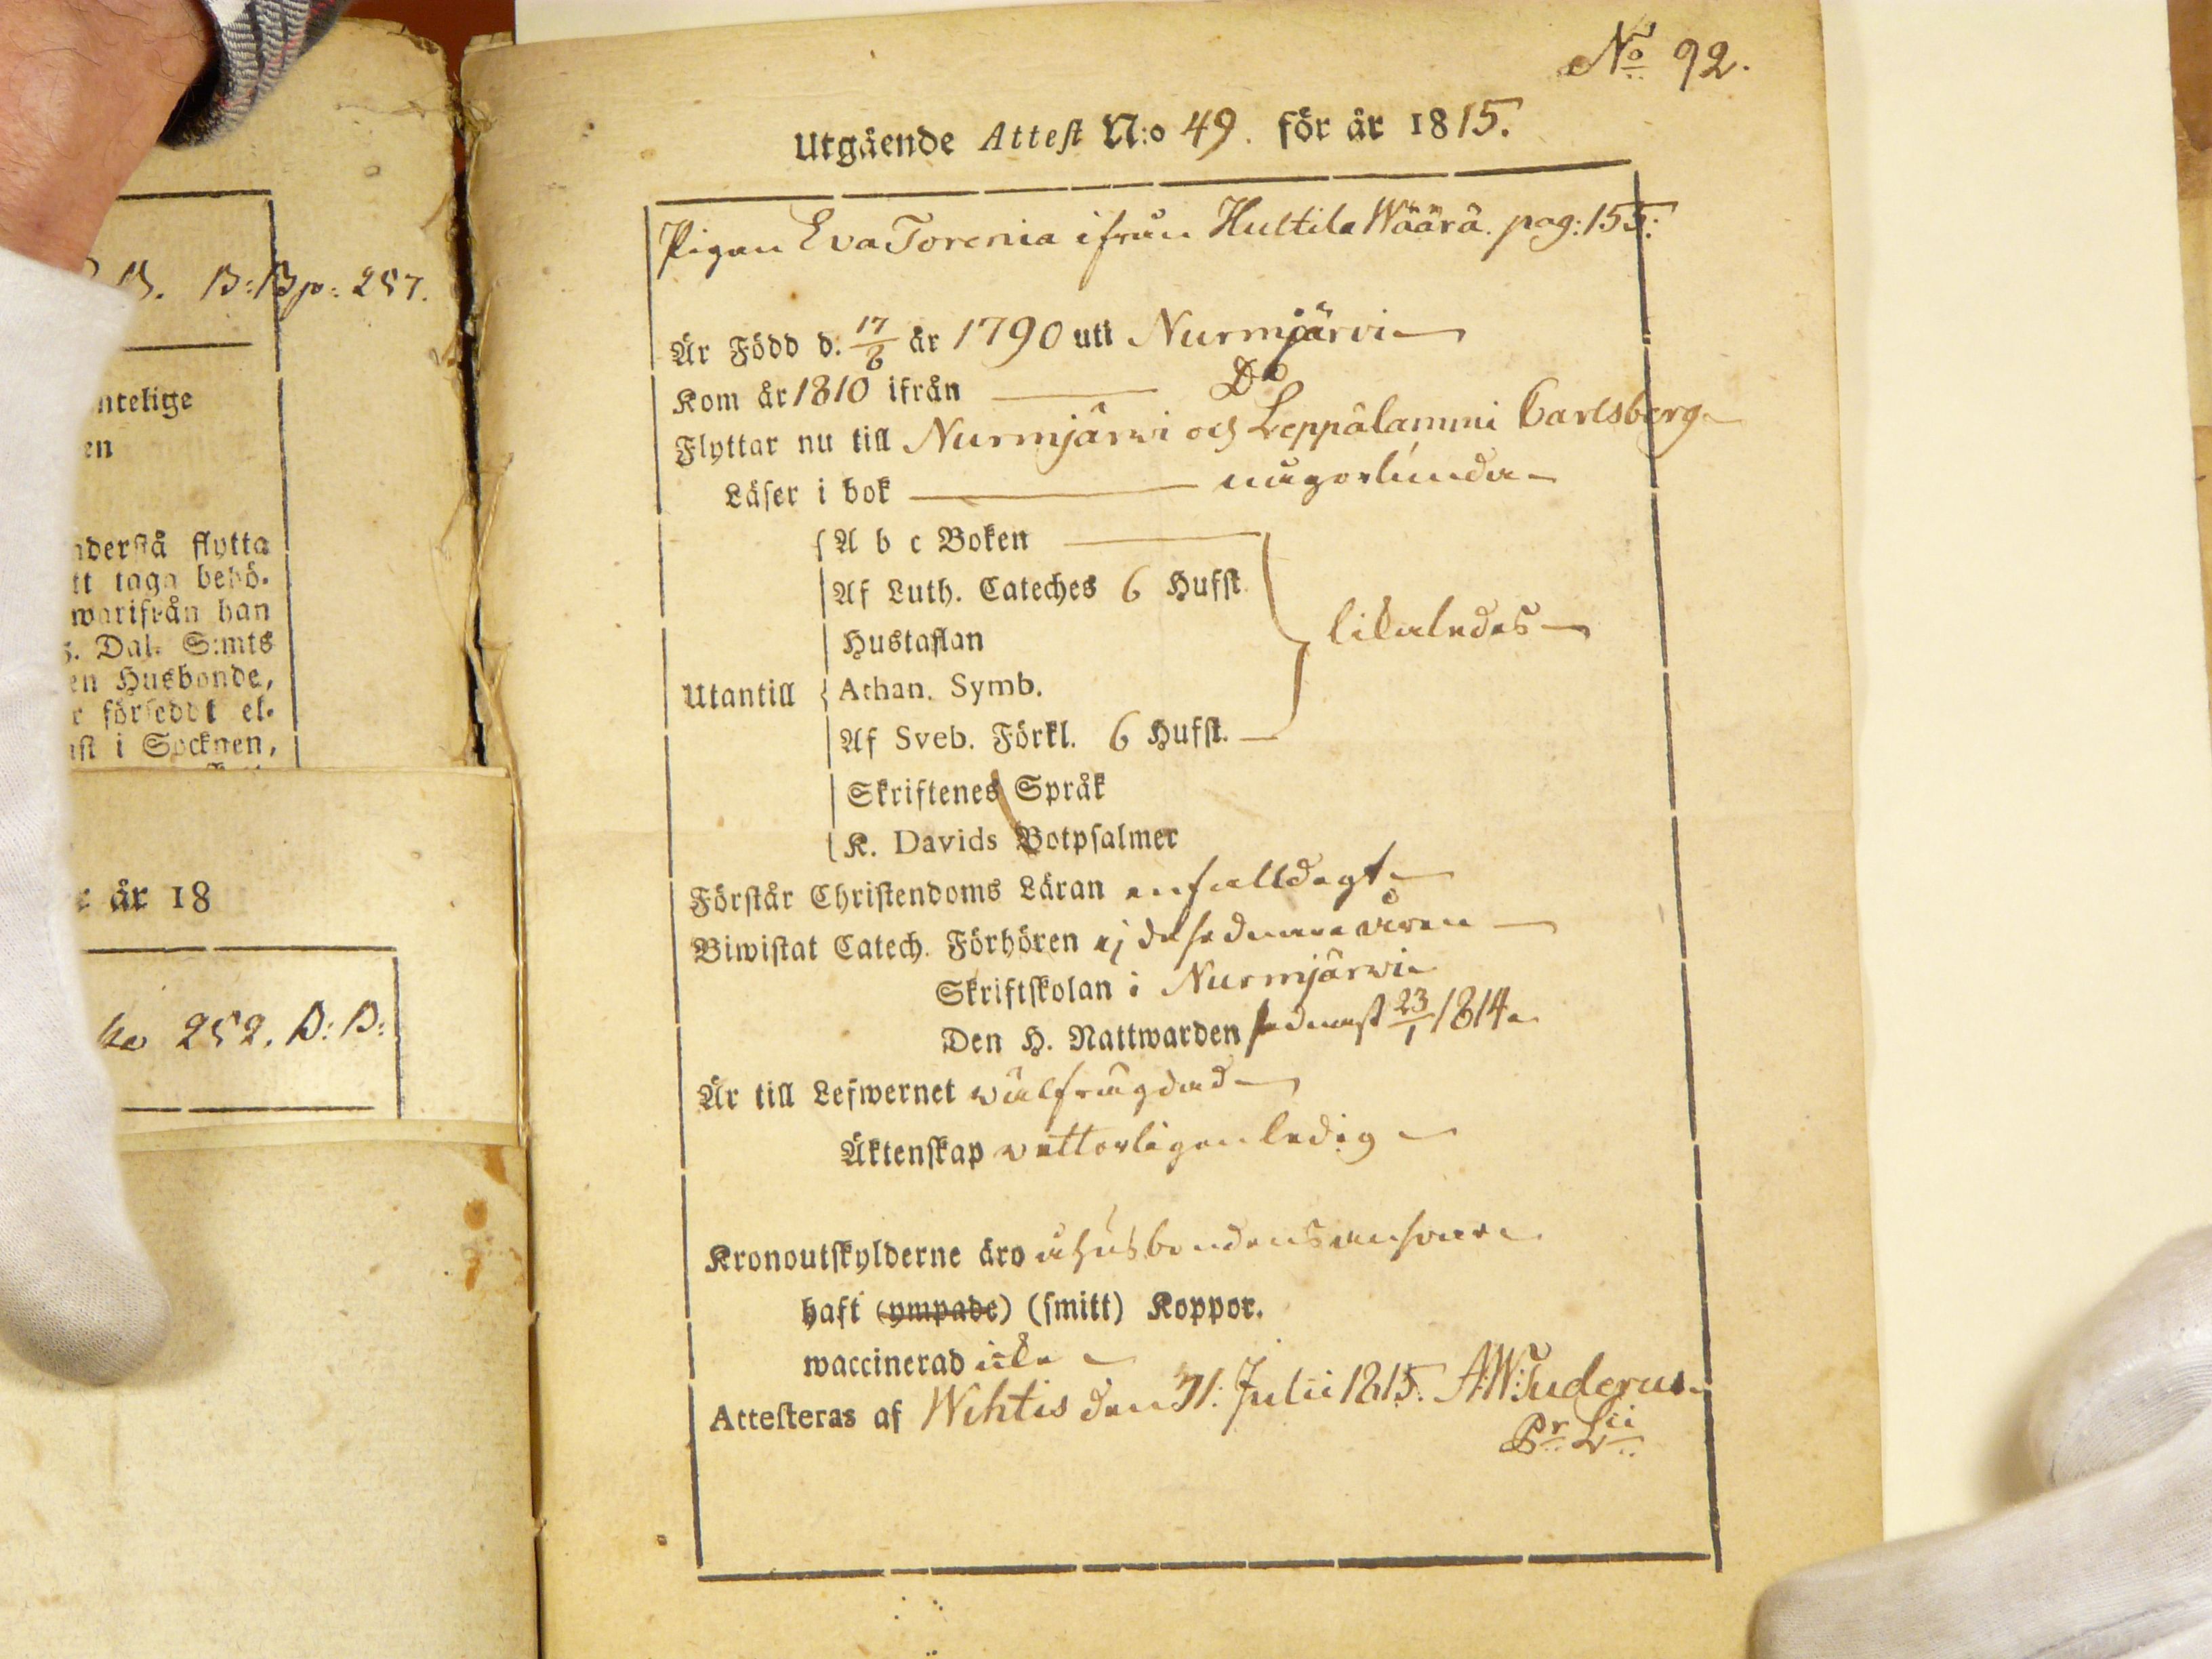 No 92.
Utgående Attest N:o 49. för år 1815.
Pigan Eva Torenia ifrån Huttila Wäärä. pag: 155:
Är Född d. 17/6 år 1790 uti Nurmjärvi
Kom år 1810 ifrån Do
Flyttar nu till Nurmjärwi och Leppälammi Carlsberg
Läser i bok någorlunda
A b c Boken
Af Luth. Cateches 6 Hufst.
Hustaflan
likaledes
Utantill Athan. Symb.
Af Sveb. Förkl. 6 Hufst.
Skriftenes Språk
K. Davids Botpsalmer
Förstår Christendoms Läran enfalldigt
Biwistat Catech. Förhören ej de sednare åren
Skriftskolan i Nurmjärwi
Den H. Nattwarden sednast 23/1 1814
Är till Lefwernet wälfrägdad
Äktenskap vetterligen ledig
Kronoutskylderne äro å husbondens ansvar
haft (ympade) (smitt) Koppor.
waccinerad icke
Attesteras af Wihtis den 31. Julii 1815. A.W. Tuderus
Pr Lci
B. B:B p: 257.
ntelige
en
nderstå flytta
tt taga behö-
warifrån han
s. Dal. S:mts
en Husbonde,
r försedd el-
ast i Socknen,
r år 18
ko 252. B: B: